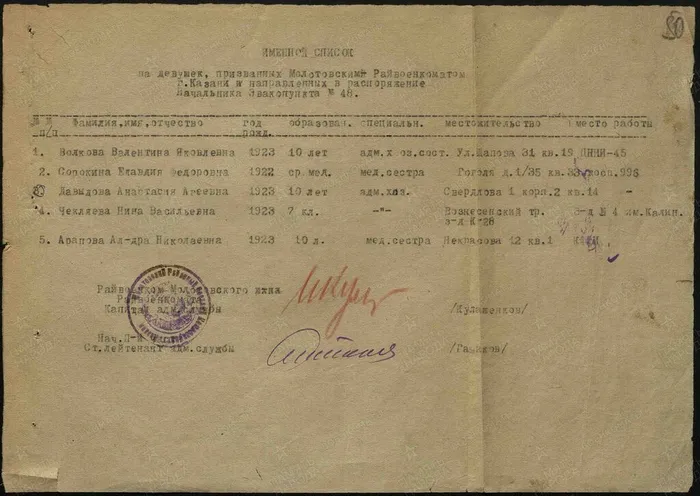 80
ИМЕННОЙ СПИСОК
на девушек, призванных Молотовским Райвоенкоматом
г.Казани и направленных в распоряжение
Начальника Эвакопункта № 48.
№№ п/п Фамилия,имя,отчество год рожд. образован. специальн. местожительство место работы
1. Волкова Валентина Яковлевна 1923 10 лет адм.хоз.сост. Ул.Щапова 31 кв.19
2. Сорокина Клавдия Федоровна 1922 ср.мел. мед.сестра Гоголя д.1/35 кв.33
Давыдова Анастасия 1923 10 лет адм.хоз. Свердлова 1 корп.2 кв.14 -
4. Чекляева Нина Васильевна 1923 7 кл. -"- Вознесенский тр. з-д № 4 им.Калин.
з-д К-28
5. Арапова Ал-дра Николаевна 1923 10 л. мед.сестра Некрасова 12 кв.1
Райвоенком Молотовского
Райвоенкомата
Капитан адм.службы /Кулаченков/
Нач.
Ст.лейтенант адм.службы